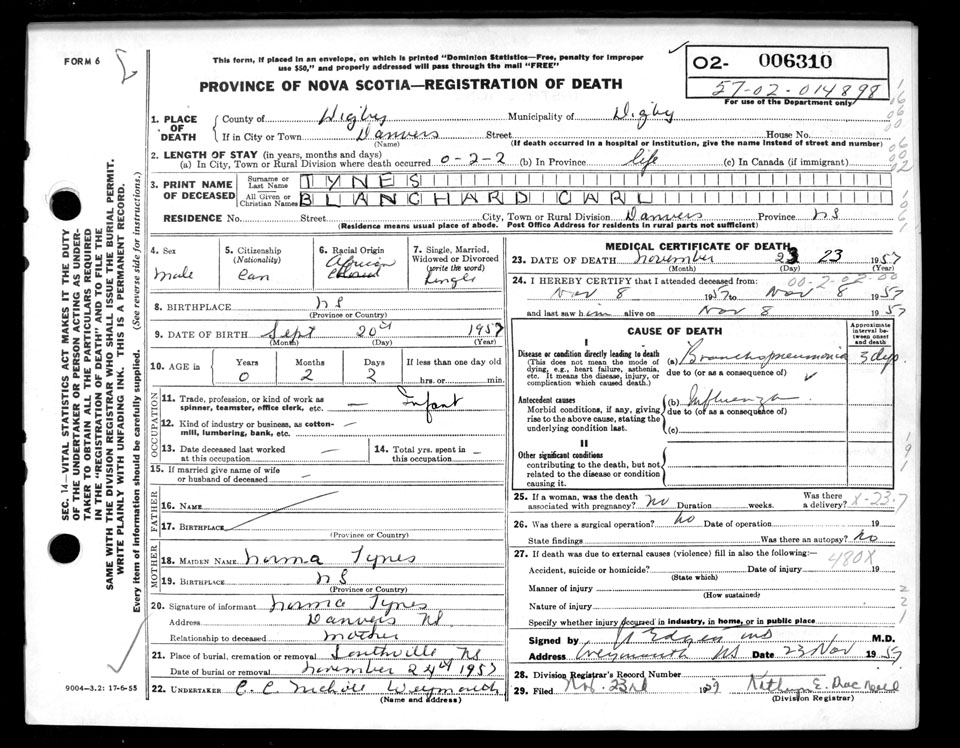 FORM 6
This form, if placed in an envelope, on which is printed "Dominion Statistics—Free, penalty for improper
use $50," and properly addressed will pass through the mail "FREE"
PROVINCE OF NOVA SCOTIA—REGISTRATION OF DEATH
O2- 006310
57-02-014898
For use of the Department only
1. PLACE OF DEATH
County of Digby Municipality of Digby
If in City or Town Danvers Street House No.
(Name) (If death occurred in a hospital or institution, give the name instead of street and number)
2. LENGTH OF STAY (in years, months and days)
(a) In City, Town or Rural Division where death occurred 0-2-2 (b) In Province life (c) In Canada (if immigrant)
3. PRINT NAME OF DECEASED
Surname or Last Name TYNES
All Given or Christian Names BLANCHARD CARL
RESIDENCE No. Street City, Town or Rural Division Danvers Province NS
(Residence means usual place of abode. Post Office Address for residents in rural parts not sufficient)
SEC. 14—VITAL STATISTICS ACT MAKES IT THE DUTY
OF THE UNDERTAKER OR PERSON ACTING AS UNDER-
TAKER TO OBTAIN ALL THE PARTICULARS REQUIRED
IN THE "REGISTRATION OF DEATH" AND TO FILE THE
SAME WITH THE DIVISION REGISTRAR WHO SHALL ISSUE THE BURIAL PERMIT.
WRITE PLAINLY WITH UNFADING INK. THIS IS A PERMANENT RECORD.
Every item of information should be carefully supplied. (See reverse side for instructions.)
4. Sex
male
5. Citizenship
(Nationality)
Can
6. Racial Origin
African
Colored
7. Single, Married,
Widowed or Divorced
(write the word)
Single
8. BIRTHPLACE NS
(Province or Country)
9. DATE OF BIRTH Sept 20th 1957
(Month) (Day) (Year)
10. AGE in
Years Months Days If less than one day old
0 2 2 hrs. or min.
OCCUPATION
11. Trade, profession, or kind of work as
spinner, teamster, office clerk, etc. — Infant
12. Kind of industry or business, as cotton-
mill, lumbering, bank, etc. —
13. Date deceased last worked
at this occupation —
14. Total yrs. spent in
this occupation —
15. If married give name of wife
or husband of deceased —
FATHER
16. NAME
17. BIRTHPLACE
(Province or Country)
MOTHER
18. MAIDEN NAME Norma Tynes
19. BIRTHPLACE NS
(Province or Country)
20. Signature of informant Norma Tynes
Address Danvers NS
Relationship to deceased Mother
21. Place of burial, cremation or removal Southville NS
Date of burial or removal November 24th 1957
22. UNDERTAKER C. E. Nicholl Weymouth
(Name and address)
9004—3.2: 17-6-55
MEDICAL CERTIFICATE OF DEATH
23. DATE OF DEATH November 23 23 1957
(Month) (Day) (Year)
00-2-02-00
24. I HEREBY CERTIFY that I attended deceased from:
Nov 8 1957 to Nov 8 1957
and last saw him alive on Nov 8 1957
CAUSE OF DEATH
Approximate interval between onset and death
I
Disease or condition directly leading to death
(This does not mean the mode of
dying, e.g., heart failure, asthenia,
etc. It means the disease, injury, or
complication which caused death.)
(a) Bronchopneumonia 3 days
due to (or as a consequence of)
Antecedent causes
Morbid conditions, if any, giving
rise to the above cause, stating the
underlying condition last.
(b) Influenza
due to (or as a consequence of)
(c)
II
Other significant conditions
contributing to the death, but not
related to the disease or condition
causing it.
25. If a woman, was the death
associated with pregnancy? no Duration weeks. Was there a delivery?
X-23-7
26. Was there a surgical operation? no Date of operation 19
State findings Was there an autopsy? no
27. If death was due to external causes (violence) fill in also the following:—
480X
Accident, suicide or homicide? Date of injury 19
(State which)
Manner of injury
(How sustained)
Nature of injury
Specify whether injury occurred in industry, in home, or in public place
Signed by Edgett MD M.D.
Address Weymouth NS Date 23 Nov 1957
28. Division Registrar's Record Number
29. Filed Nov. 23rd 1957 Kathryn E. MacNeill
(Division Registrar)